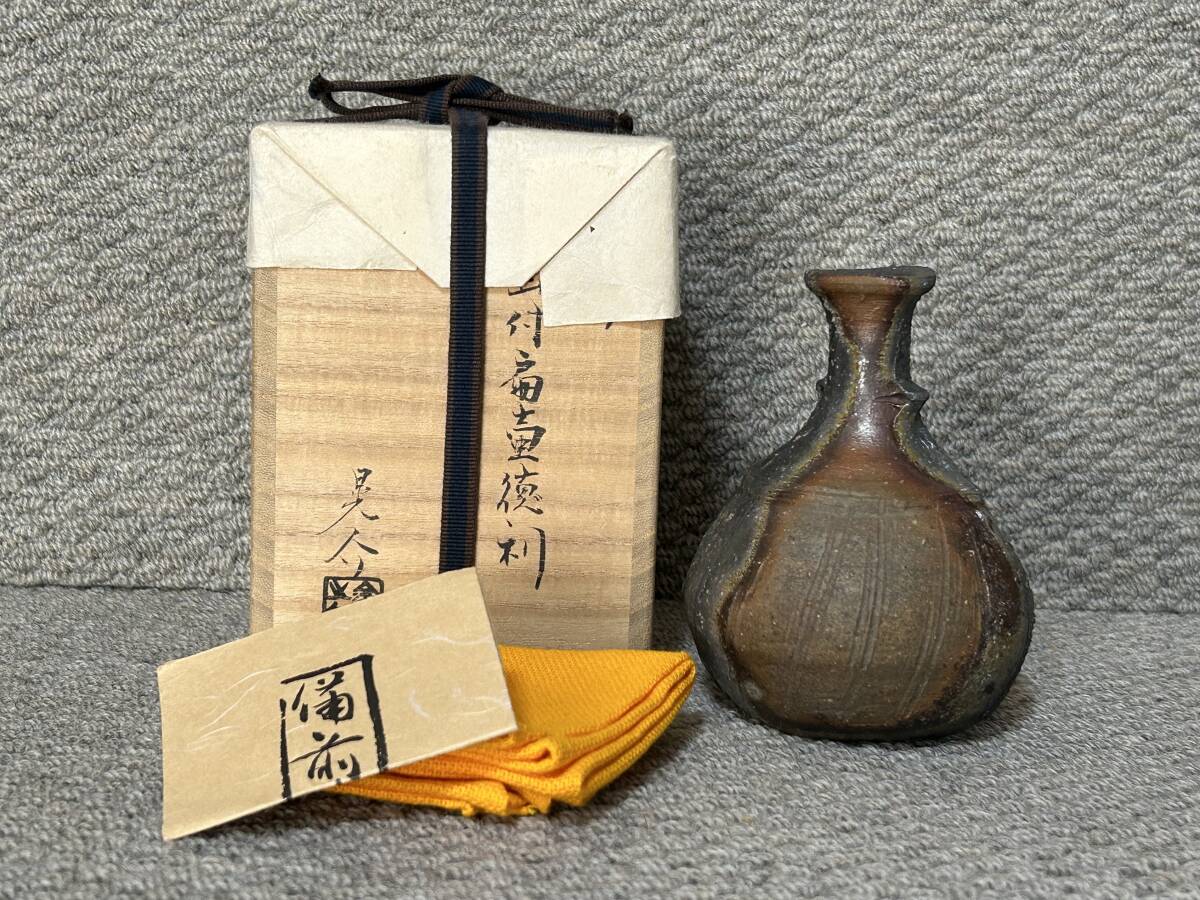 付扁壷徳利
晃介
備前